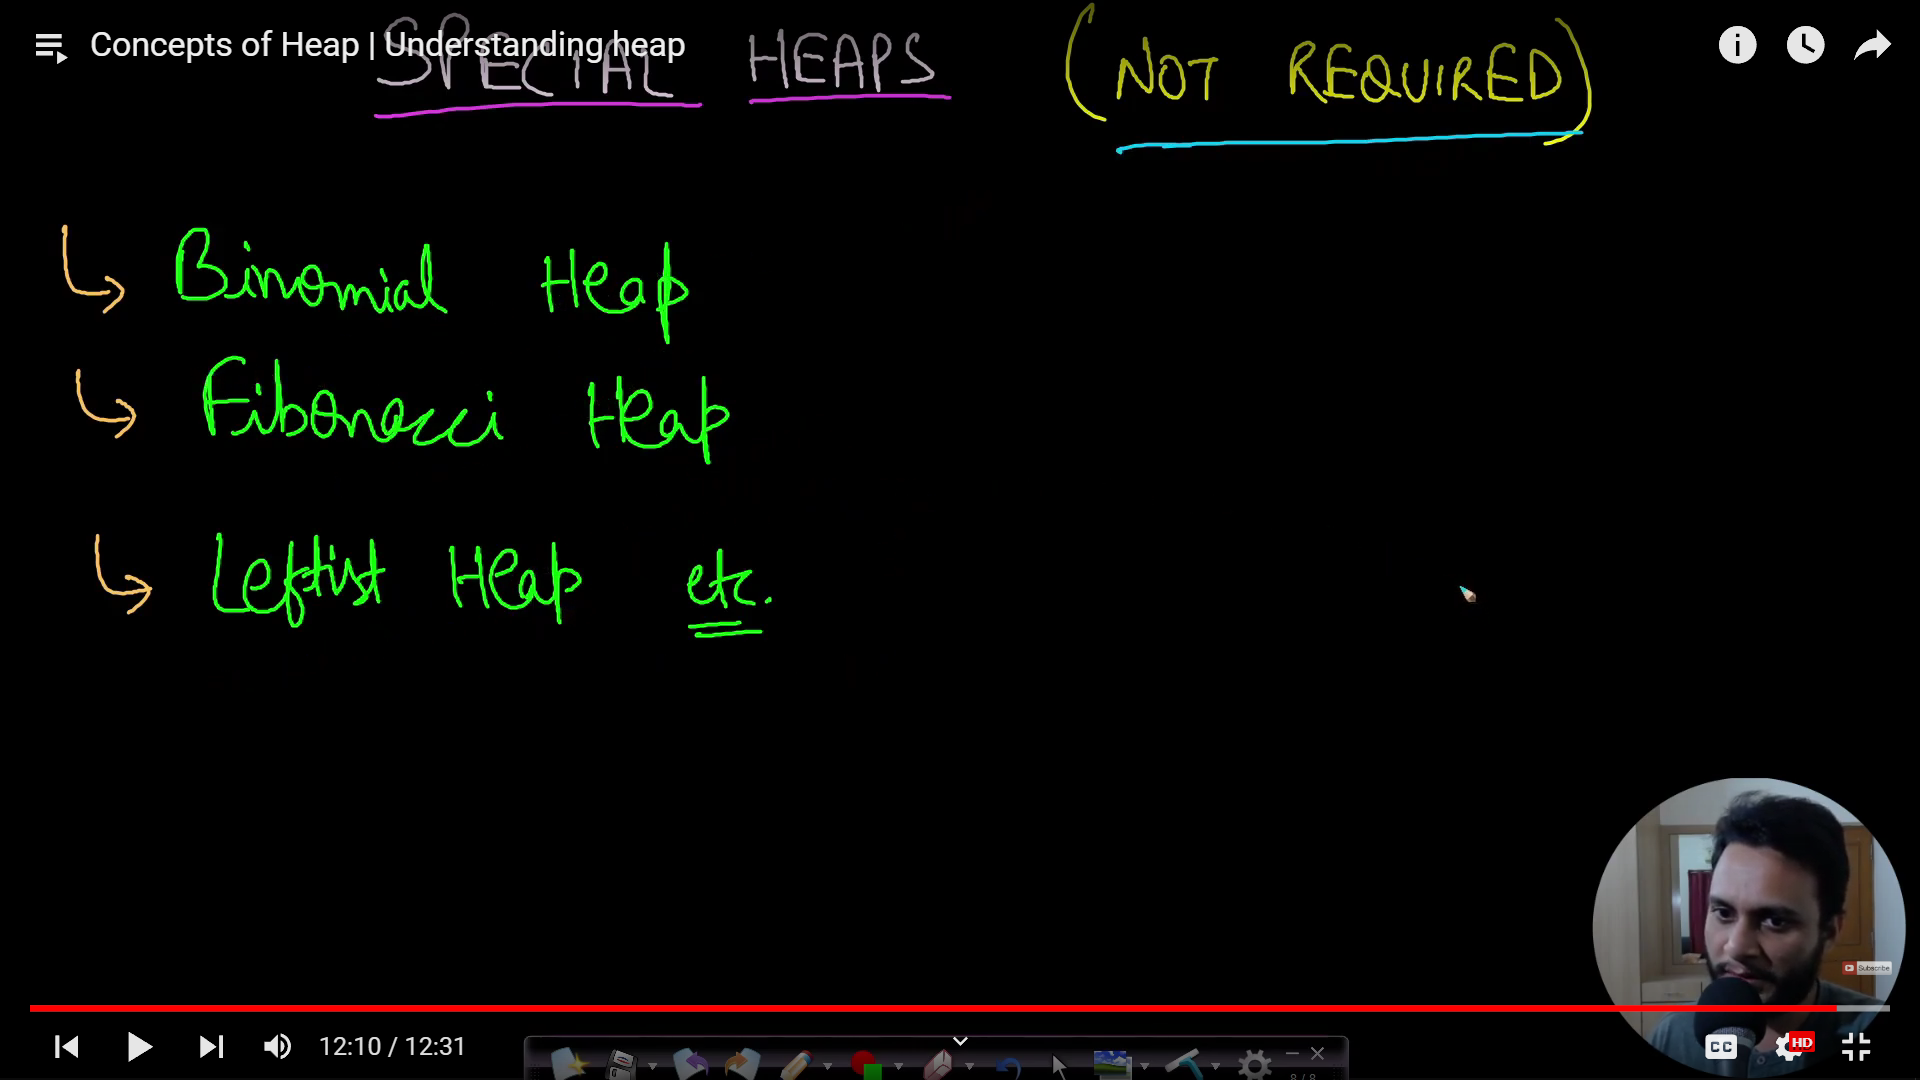 Concepts of Heap | Understanding heap
SPECIAL HEAPS (NOT REQUIRED)
Binomial Heap
Fibonacci Heap
Leftist Heap etc.
Subscribe
12:10 / 12:31
CC
HD
8/8